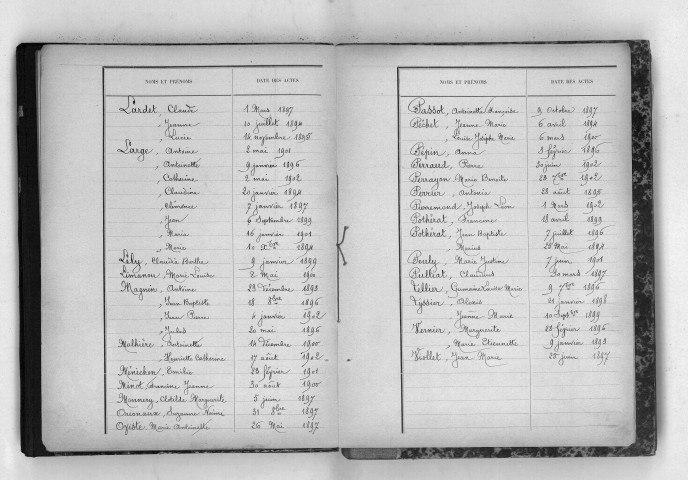 NOMS ET PRÉNOMS DATE DES ACTES
Lardet, Claude 1 Mars 1897
, Jeanne 10 juillet 1894
, Lucie 14 novembre 1895
Large, Antoine 2 mai 1901
, Antoinette 9 janvier 1896
, Catherine 2 mai 1902
, Claudine 20 janvier 1894
, Clémence 7 janvier 1897
, Jean 6 Septembre 1899
, Maria 16 janvier 1901
, Marie 10 Xbre 1894
Lély, Claudia Berthe 9 janvier 1899
, Marie Louise 2 Mai
Magnin, Antoine 23 décembre 1893
, Jean Baptiste 18 8bre 1896
, Jean Pierre 4 janvier 1902
, Jules 20 mai 1896
Malhière, Antoinette 14 décembre 1900
, Henriette Catherine 17 août 1902
, Emilie 23 février 1901
, Jeanne 30 août 1900
, Clotilde Marguerite 5 juin 1897
, Suzanne 31 8bre 1897
, Marie Antoinette 26 Mai 1897
NOMS ET PRÉNOMS DATE DES ACTES
Passot, Antoinette Françoise 9 Octobre 1897
Péchet, Jeanne Marie 6 avril 1894
, Louise Josèphe Marie 6 mars 1900
Pépin, Anna 8 février 1896
Perraud, Pierre 30 juin 1902
Perrayon Marie Benoite 23 7bre 1902
Perrier, Antonia 28 août 1895
, Joseph Léon 1 Mars 1902
Pothérat, Francine 18 avril 1899
Pothérat, Jean Baptiste 7 juillet 1896
, Marius 25 Mai 1894
, Marie Justine 7 juin 1901
, Claudius 30 mars 1897
Tillier, Germaine Marie 9 7bre 1896
Tyssier, Alexis 21 janvier 1898
, Jeanne Marie 10 Septbre 1899
Vernier, Marguerite 28 février 1896
, Marie Etiennette 9 janvier 1893
Viollet, Jean Marie 25 juin 1897